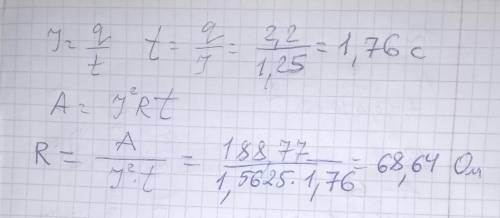 I = q/t t = q/I = 2,2/1,25 = 1,76 с
A = I²Rt
R = A/I²·t = 188,77/1,5625·1,76 = 68,64 Ом